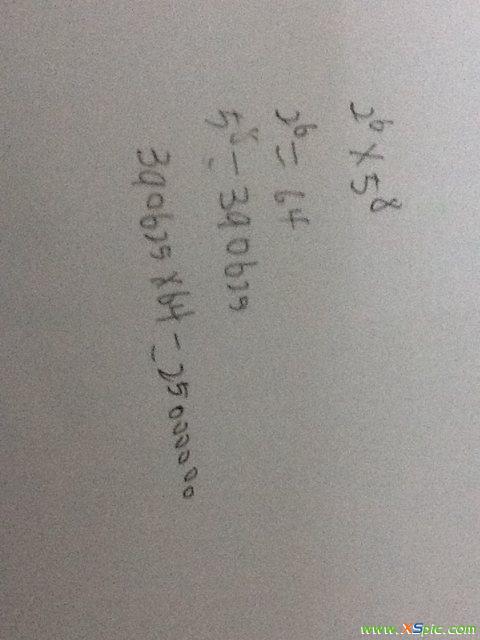 2⁶×5⁸
2⁶=64
5⁸=390625
390625×64=25000000
www.XSpic.com